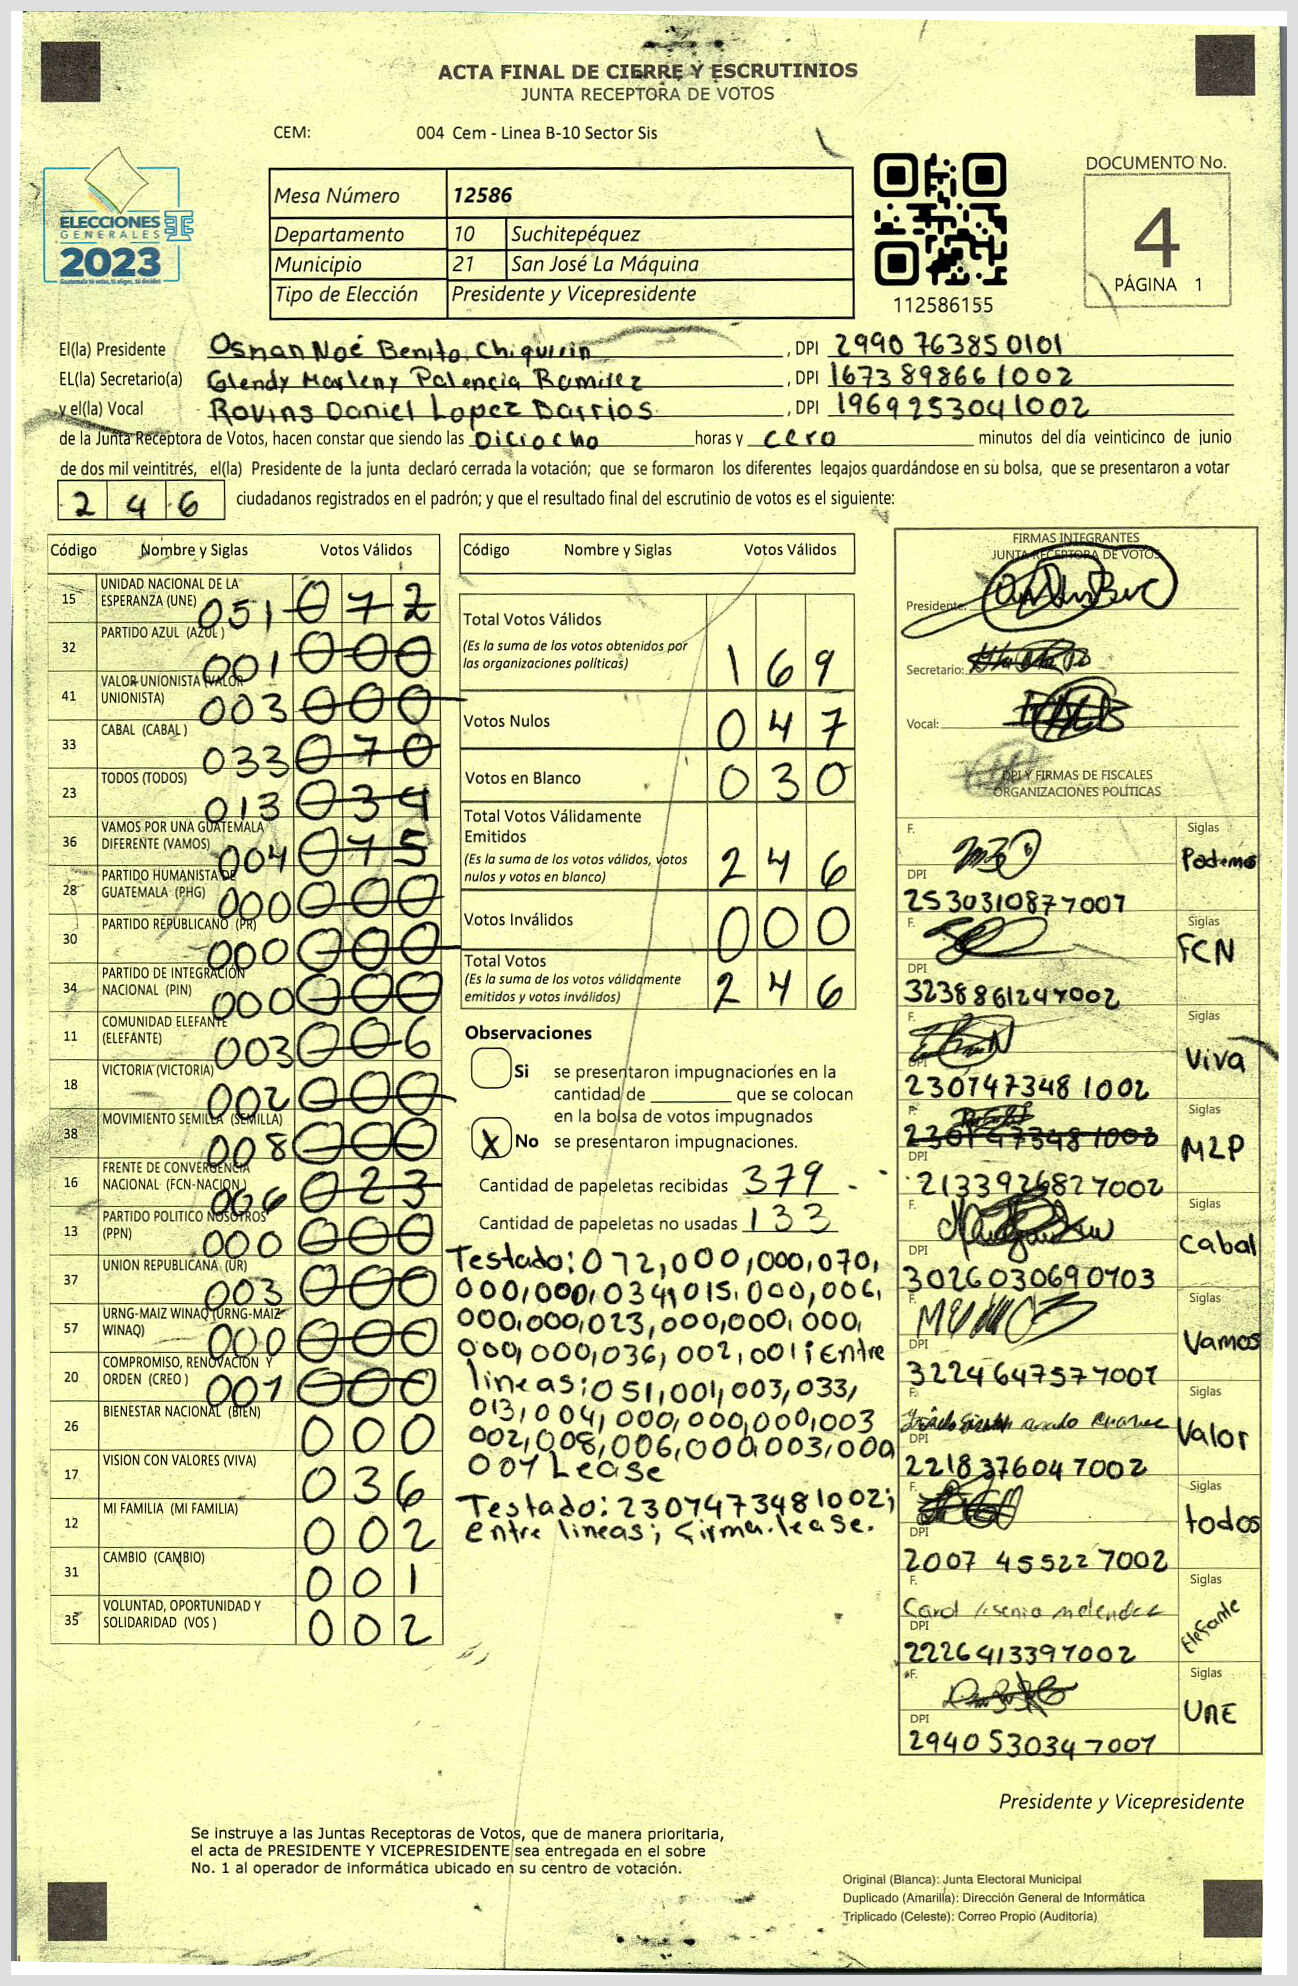 ACTA FINAL DE CIERRE Y ESCRUTINIOS
JUNTA RECEPTORA DE VOTOS
CEM: 004 Cem - Linea B-10 Sector Sis
DOCUMENTO No.
4
PÁGINA 1
ELECCIONES
GENERALES
2023
Mesa Número 12586
Departamento 10 Suchitepéquez
Municipio 21 San José La Máquina
Tipo de Elección Presidente y Vicepresidente
112586155
El(la) Presidente Osman Noé Benito Chiquirin, DPI 2990 76385 0101
EL(la) Secretario(a) Glendy Marleny Palencia Ramirez, DPI 1673898661002
y el(la) Vocal Rovins Daniel Lopez Barrios, DPI 1969253041002
de la Junta Receptora de Votos, hacen constar que siendo las Diciocho horas y cero minutos del día veinticinco de junio
de dos mil veintitrés, el(la) Presidente de la junta declaró cerrada la votación; que se formaron los diferentes legajos guardándose en su bolsa, que se presentaron a votar
2 4 6 ciudadanos registrados en el padrón; y que el resultado final del escrutinio de votos es el siguiente:
Código Nombre y Siglas Votos Válidos
15 UNIDAD NACIONAL DE LA ESPERANZA (UNE) 051 072
32 PARTIDO AZUL (AZUL ) 001 000
41 VALOR UNIONISTA (VALOR UNIONISTA) 003 000
33 CABAL (CABAL ) 033 070
23 TODOS (TODOS) 013 034
36 VAMOS POR UNA GUATEMALA DIFERENTE (VAMOS) 004 075
28 PARTIDO HUMANISTA DE GUATEMALA (PHG) 000 000
30 PARTIDO REPUBLICANO (PR) 000 000
34 PARTIDO DE INTEGRACIÓN NACIONAL (PIN) 000 000
11 COMUNIDAD ELEFANTE (ELEFANTE) 003 006
18 VICTORIA (VICTORIA) 002 000
38 MOVIMIENTO SEMILLA (SEMILLA) 008 000
16 FRENTE DE CONVERGENCIA NACIONAL (FCN-NACION) 006 023
13 PARTIDO POLITICO NOSOTROS (PPN) 000 000
37 UNION REPUBLICANA (UR) 003 000
57 URNG-MAIZ WINAQ (URNG-MAIZ WINAQ) 000 000
20 COMPROMISO, RENOVACION Y ORDEN (CREO ) 001 000
26 BIENESTAR NACIONAL (BIEN) 000
17 VISION CON VALORES (VIVA) 036
12 MI FAMILIA (MI FAMILIA) 002
31 CAMBIO (CAMBIO) 001
35 VOLUNTAD, OPORTUNIDAD Y SOLIDARIDAD (VOS ) 002
Código Nombre y Siglas Votos Válidos
Total Votos Válidos
(Es la suma de los votos obtenidos por
las organizaciones políticas) 1 6 9
Votos Nulos 0 4 7
Votos en Blanco 0 3 0
Total Votos Válidamente
Emitidos
(Es la suma de los votos válidos, votos
nulos y votos en blanco) 2 4 6
Votos Inválidos 0 0 0
Total Votos
(Es la suma de los votos válidamente
emitidos y votos inválidos) 2 4 6
Observaciones
Si se presentaron impugnaciones en la
cantidad de ________ que se colocan
en la bolsa de votos impugnados
X No se presentaron impugnaciones.
Cantidad de papeletas recibidas 379
Cantidad de papeletas no usadas 133
Testado: 072,000,000,070,
000,000,034,015,000,006,
000,000,023,000,000,000,
000,000,036,002,001; Entre
lineas; 051,001,003,033,
013,004,000,000,000,003
002,008,006,000,003,000
001 Lease
Testado: 2307473481002;
entre lineas; firma. lease.
FIRMAS INTEGRANTES
JUNTA RECEPTORA DE VOTOS
Presidente:
Secretario:
Vocal:
DPI Y FIRMAS DE FISCALES
ORGANIZACIONES POLÍTICAS
F. Siglas
Podemos
DPI
2530310877007
F. Siglas
FCN
DPI
3238861247002
F. Siglas
Viva
DPI
2307473481002
F. Siglas
2307473481002
MLP
DPI
2133926827002
F. Siglas
Cabal
DPI
3026030690703
F. Siglas
Vamos
DPI
3224647577007
F. Siglas
Valor
DPI
2218376047002
F. Siglas
todos
DPI
2007 45522 7002
F. Siglas
Elefante
DPI
2226413397002
F. Siglas
UNE
DPI
2940530347007
Presidente y Vicepresidente
Se instruye a las Juntas Receptoras de Votos, que de manera prioritaria,
el acta de PRESIDENTE Y VICEPRESIDENTE sea entregada en el sobre
No. 1 al operador de informática ubicado en su centro de votación.
Original (Blanca): Junta Electoral Municipal
Duplicado (Amarilla): Dirección General de Informática
Triplicado (Celeste): Correo Propio (Auditoría)